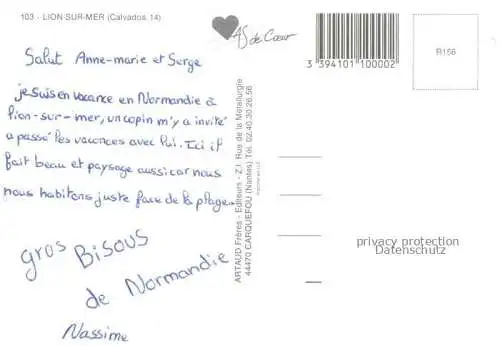 103 - LION-SUR-MER (Calvados. 14)
AS de Cœur
3 394101 100002
R156
Salut Anne-marie et Serge
je suis en vacance en Normandie à
lion-sur-mer, un copin m'y a invité
a passé les vacances avec lui. Ici il
fait beau et paysage aussi car nous
nous habitons juste face de la plage.
gros Bisous
de Normandie
Nassime
ARTAUD Frères - Editeurs - Z.I. Rue de la Métallurgie
44470 CARQUEFOU (Nantes) Tél. 02.40.30.26.56
privacy protection
Datenschutz